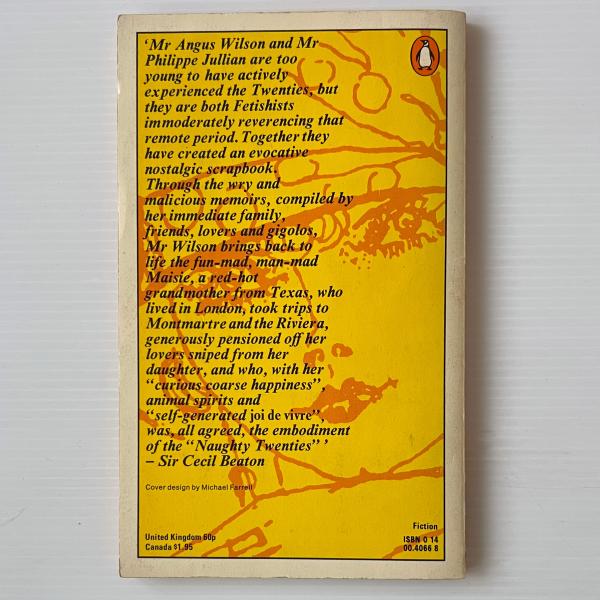 'Mr Angus Wilson and Mr
Philippe Jullian are too
young to have actively
experienced the Twenties, but
they are both Fetishists
immoderately reverencing that
remote period. Together they
have created an evocative
nostalgic scrapbook.
Through the wry and
malicious memoirs, compiled by
her immediate family,
friends, lovers and gigolos,
Mr Wilson brings back to
life the fun-mad, man-mad
Maisie, a red-hot
grandmother from Texas, who
lived in London, took trips to
Montmartre and the Riviera,
generously pensioned off her
lovers sniped from her
daughter, and who, with her
"curious coarse happiness",
animal spirits and
"self-generated joi de vivre",
was, all agreed, the embodiment
of the "Naughty Twenties" '
– Sir Cecil Beaton
Cover design by Michael Farrell
United Kingdom 60p
Canada $1.95
Fiction
ISBN 0 14
00.4066 8